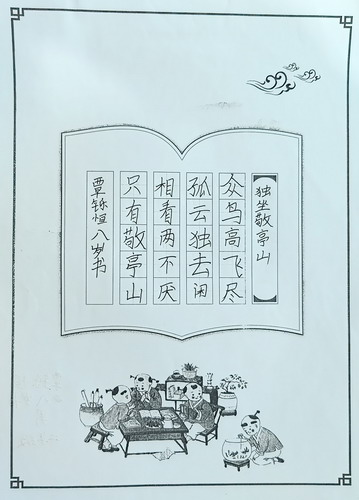 独坐敬亭山
众鸟高飞尽
孤云独去闲
相看两不厌
只有敬亭山
覃铄恒八岁书